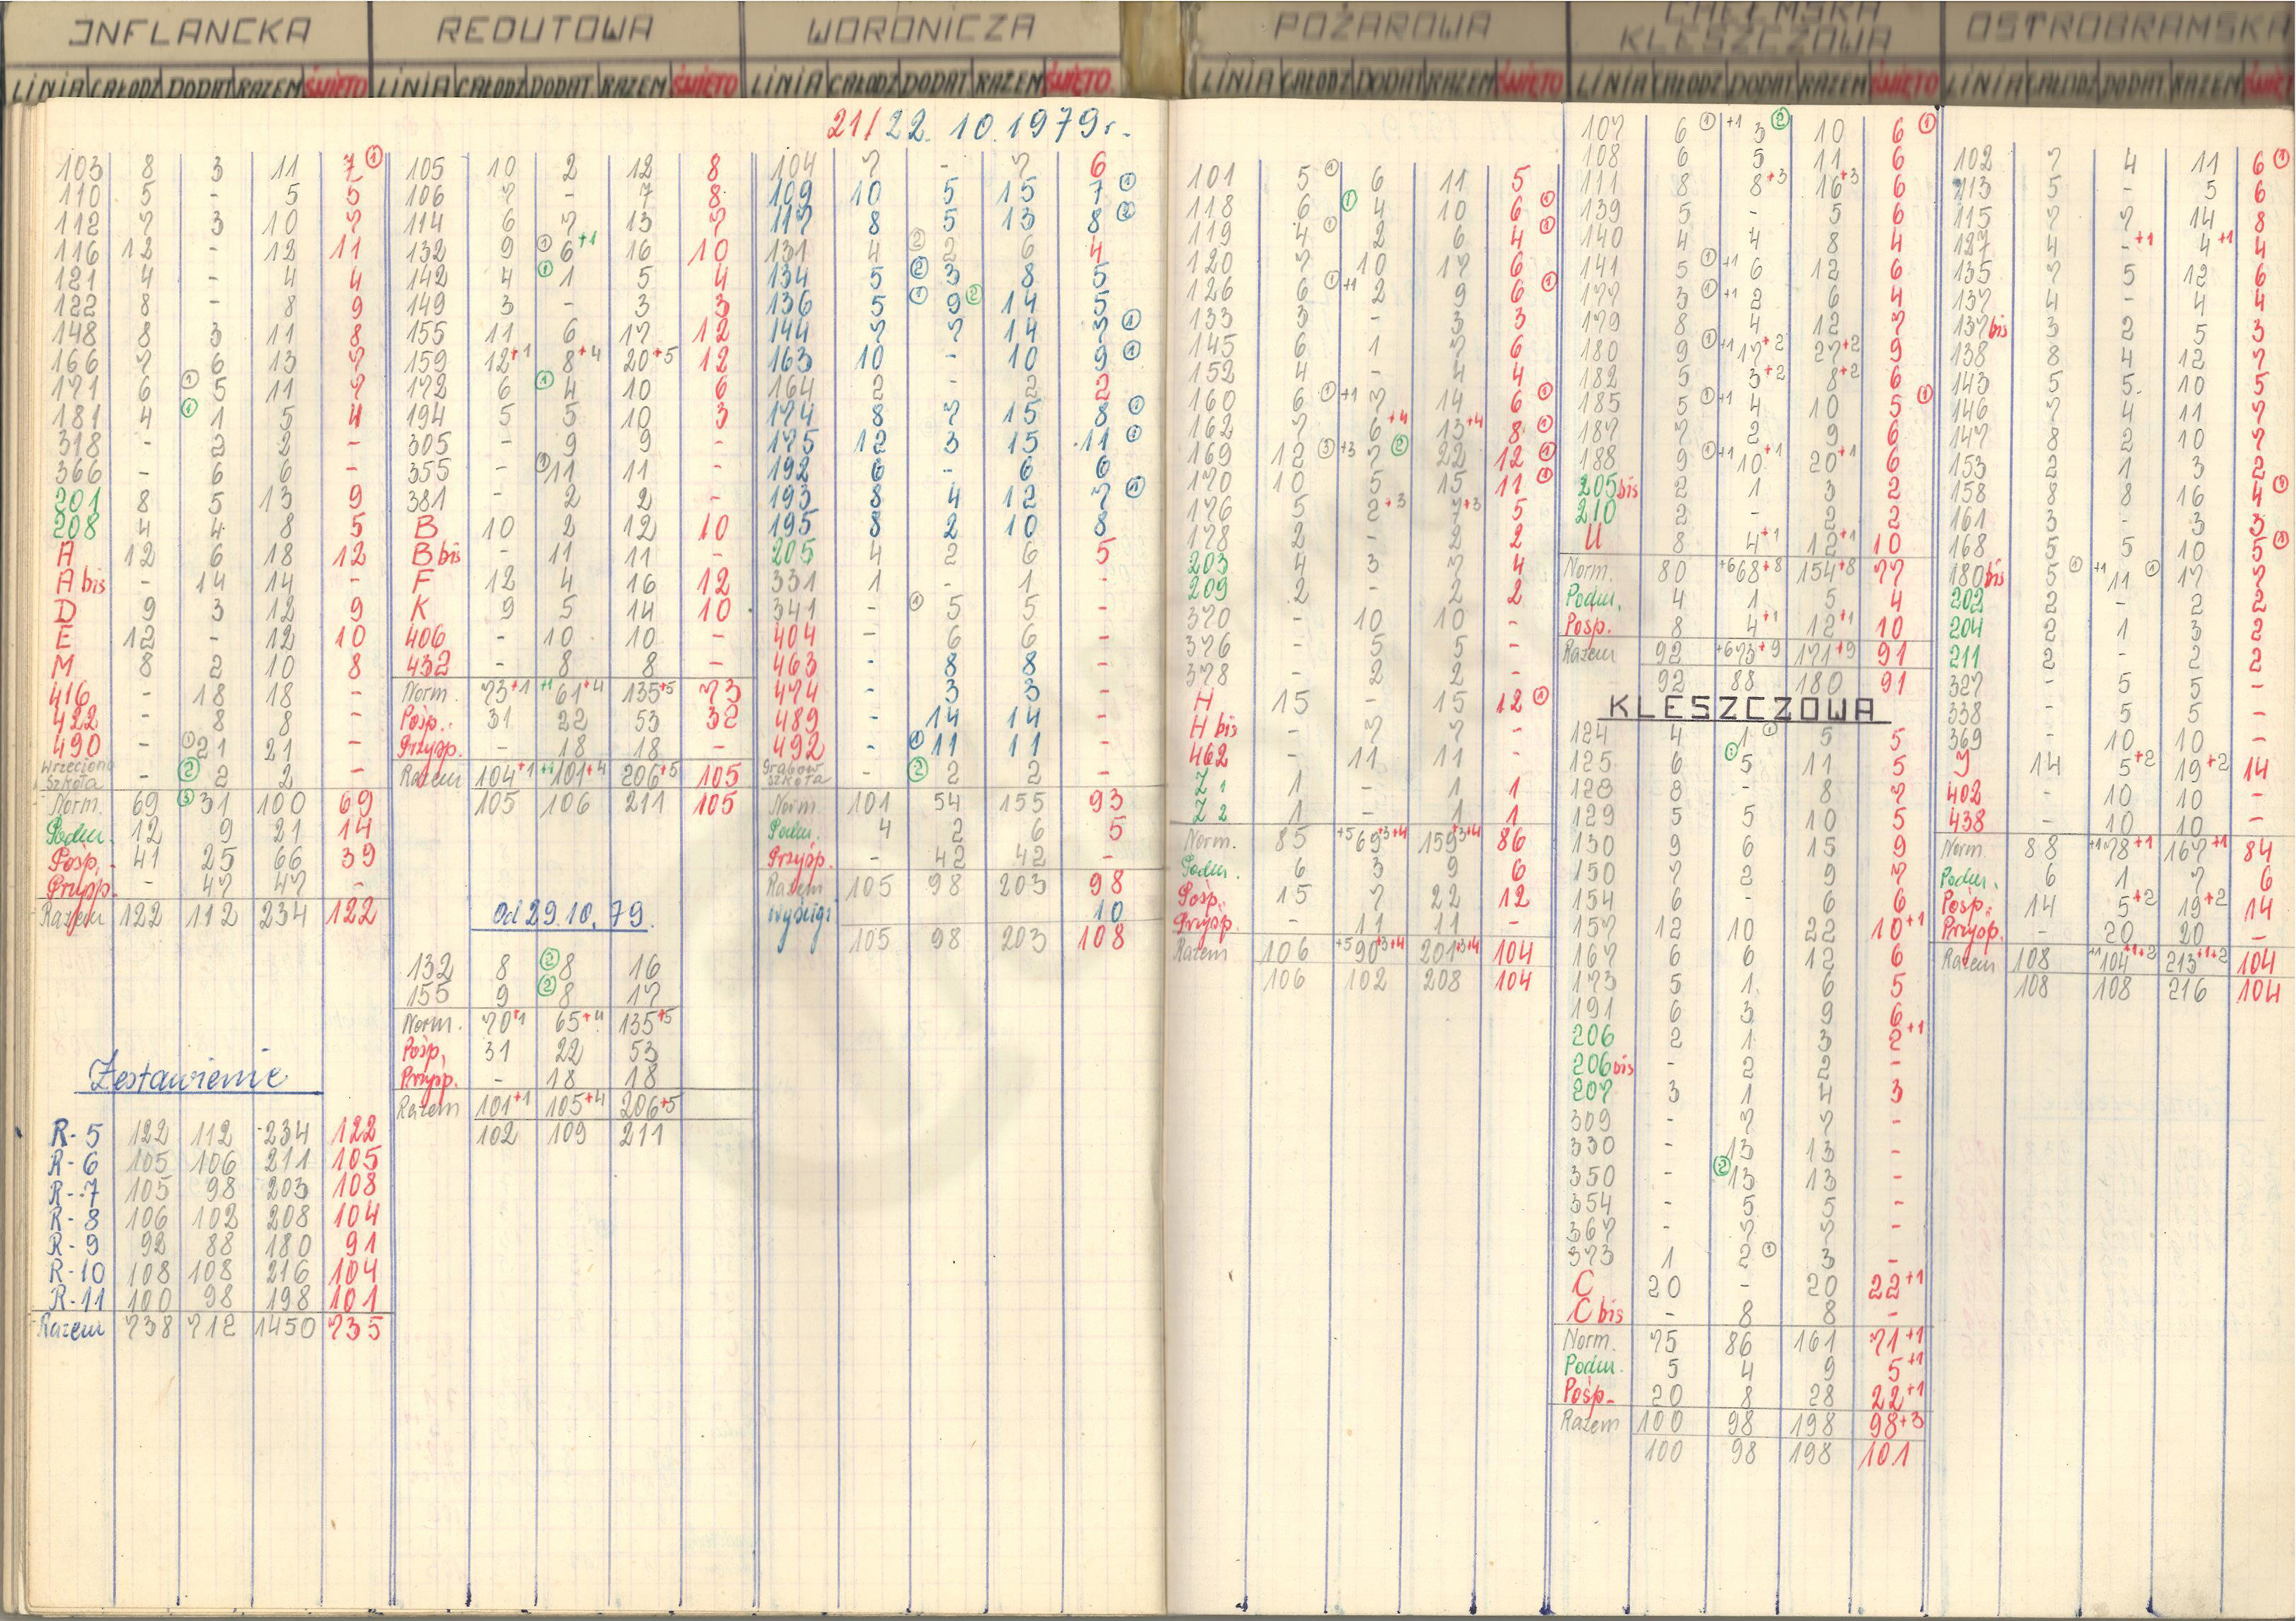 INFLANCKA
LINIA CAŁODZ DODAT RAZEM ŚWIĘTO
103 8 3 11 7 ①
110 5 - 5 5
112 7 3 10 7
116 12 - 12 11
121 4 - 4 4
122 8 - 8 9
148 8 3 11 8
166 7 6 13 7
171 6 ① 5 11 7
181 4 ① 1 5 4
318 - 2 2 -
366 - 6 6 -
201 8 5 13 9
208 4 4 8 5
A 12 6 18 12
A bis - 14 14 -
D 9 3 12 9
E 12 - 12 10
M 8 2 10 8
416 - 18 18 -
422 - 8 8 -
490 - ① 21 21 -
Wrzeciono
Szkoła - ② 2 2 -
Norm. 69 ③ 31 100 69
Podm. 12 9 21 14
Pośp. 41 25 66 39
Przysp. - 47 47 -
Razem 122 112 234 122
Zestawienie
R-5 122 112 234 122
R-6 105 106 211 105
R-7 105 98 203 108
R-8 106 102 208 104
R-9 92 88 180 91
R-10 108 108 216 104
R-11 100 98 198 101
Razem 738 712 1450 735
REDUTOWA
LINIA CAŁODZ DODAT RAZEM ŚWIĘTO
105 10 2 12 8
106 7 - 7 8
114 6 7 13 7
132 9 ① 6+1 16 10
142 4 ① 1 5 4
149 3 - 3 3
155 11 6 17 12
159 12+1 8+4 20+5 12
172 6 ① 4 10 6
194 5 5 10 3
305 - 9 9 -
355 - ① 11 11 -
381 - 2 2 -
B 10 2 12 10
B bis - 11 11 -
F 12 4 16 12
K 9 5 14 10
406 - 10 10 -
432 - 8 8 -
Norm. 73+1 +1 61+4 135+5 73
Pośp. 31 22 53 32
Przysp. - 18 18 -
Razem 104+1 +1 101+4 206+5 105
105 106 211 105
Od 29.10.79.
132 8 ② 8 16
155 9 ② 8 17
Norm. 70+1 65+4 135+5
Pośp. 31 22 53
Przysp. - 18 18
Razem 101+1 105+4 206+5
102 109 211
WORONICZA
LINIA CAŁODZ DODAT RAZEM ŚWIĘTO
21/22.10.1979r.
104 7 - 7 6
109 10 5 15 7 ①
117 8 5 13 8 ②
131 4 ② 2 6 4
134 5 ② 3 8 5
136 5 ① 9 ② 14 5
144 7 7 14 7 ①
163 10 - 10 9 ①
164 2 - 2 2
174 8 7 15 8 ①
175 12 3 15 11 ①
192 6 - 6 6
193 8 4 12 7 ①
195 8 2 10 8
205 4 2 6 5
331 1 - 1 -
341 - ① 5 5 -
404 - 6 6 -
463 - 8 8 -
474 - 3 3 -
489 - 14 14 -
492 - ① 11 11 -
Grabów
Szkoła - ② 2 2 -
Norm. 101 54 155 93
Podm. 4 2 6 5
Przysp. - 42 42 -
Razem 105 98 203 98
Wyścigi 10
105 98 203 108
POŻAROWA
LINIA CAŁODZ DODAT RAZEM ŚWIĘTO
101 5 ① 6 11 5
118 6 ① 4 10 6 ①
119 4 ① 2 6 4 ①
120 7 10 17 6
126 6 ① +1 2 9 6 ①
133 3 - 3 3
145 6 1 7 6
152 4 - 4 4
160 6 ① +1 7 14 6 ①
162 7 6+4 13+4 8 ①
169 12 ③ +3 7 ② 22 12 ①
170 10 5 15 11 ①
176 5 2+3 7+3 5
178 2 - 2 2
203 4 3 7 4
209 2 - 2 2
370 - 10 10 -
376 - 5 5 -
378 - 2 2 -
H 15 - 15 12 ①
H bis - 7 7 -
462 - 11 11 -
Z 1 1 - 1 1
Z 2 1 - 1 1
Norm. 85 +5 69+3+4 159+3+4 86
Podm. 6 3 9 6
Pośp. 15 7 22 12
Przysp. - 11 11 -
Razem 106 +5 90+3+4 201+3+4 104
106 102 208 104
CHEŁMSKA
KLESZCZOWA
LINIA CAŁODZ DODAT RAZEM ŚWIĘTO
107 6 ① +1 3 ② 10 6 ①
108 6 5 11 6
111 8 8+3 16+3 6
139 5 - 5 6
140 4 4 8 4
141 5 ① +1 6 12 6
177 3 ① +1 2 6 4
179 8 4 12 7
180 9 ① +1 17+2 27+2 9
182 5 3+2 8+2 6
185 5 ① +1 4 10 5 ①
187 7 2 9 6
188 9 ① +1 10+1 20+1 6
205bis 2 1 3 2
210 2 - 2 2
U 8 4+1 12+1 10
Norm. 80 +6 68+8 154+8 77
Podm. 4 1 5 4
Posp. 8 4+1 12+1 10
Razem 92 +6 73+9 171+9 91
92 88 180 91
KLESZCZOWA
124 4 1 ① 5 5
125 6 ① 5 11 5
128 8 - 8 7
129 5 5 10 5
130 9 6 15 9
150 7 2 9 7
154 6 - 6 6
157 12 10 22 10+1
167 6 6 12 6
173 5 1 6 5
191 6 3 9 6
206 2 1 3 2+1
206bis - 2 2 -
207 3 1 4 3
309 - 7 7 -
330 - 13 13 -
350 - ② 13 13 -
354 - 5 5 -
367 - 7 7 -
373 1 2 ① 3 -
C 20 - 20 22+1
C bis - 8 8 -
Norm. 75 86 161 71+1
Podm. 5 4 9 5+1
Pośp. 20 8 28 22+1
Razem 100 98 198 98+3
100 98 198 101
OSTROBRAMSKA
LINIA CAŁODZ DODAT RAZEM ŚWIĘTO
102 7 4 11 6 ①
113 5 - 5 6
115 7 7 14 8
127 4 -+1 4+1 4
135 7 5 12 6
137 4 - 4 4
137bis 3 2 5 3
138 8 4 12 7
143 5 5 10 5
146 7 4 11 7
147 8 2 10 7
153 2 1 3 2
158 8 8 16 4 ①
161 3 - 3 3
168 5 5 10 5 ①
180bis 5 ① +1 11 ① 17 7
202 2 - 2 2
204 2 1 3 2
211 2 - 2 2
327 - 5 5 -
338 - 5 5 -
369 - 10 10 -
J 14 5+2 19+2 14
402 - 10 10 -
438 - 10 10 -
Norm. 88 +1 78+1 167+1 84
Podm. 6 1 7 6
Pośp. 14 5+2 19+2 14
Przysp. - 20 20 -
Razem 108 +1 104+1+2 213+1+2 104
108 108 216 104